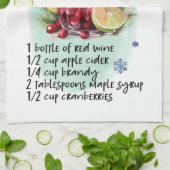 1 bottle of red wine
1/2 cup apple cider
1/4 cup brandy
2 tablespoons maple syrup
1/2 cup cranberries